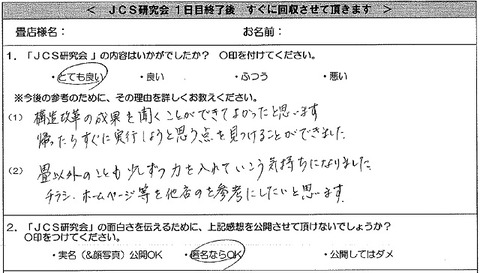 ＜ JCS研究会 1日目終了後 すぐに回収させて頂きます ＞
畳店様名： お名前：
1．「JCS研究会」の内容はいかがでしたか？ 〇印を付けてください。
・とても良い ・良い ・ふつう ・悪い
※今後の参考のために、その理由を詳しくお教えください。
(1) 構造改革の成果を聞くことができてよかったと思います
帰ったらすぐに実行しようと思う点を見つけることができました
(2) 畳以外のことも少しずつ力を入れていこう気持ちになりました
チラシ、ホームページ等を他店のを参考にしたいと思います.
2．「JCS研究会」の面白さを伝えるために、上記感想を公開させて頂けないでしょうか？
〇印をつけてください。
・実名（&顔写真）公開OK ・匿名ならOK ・公開してはダメ